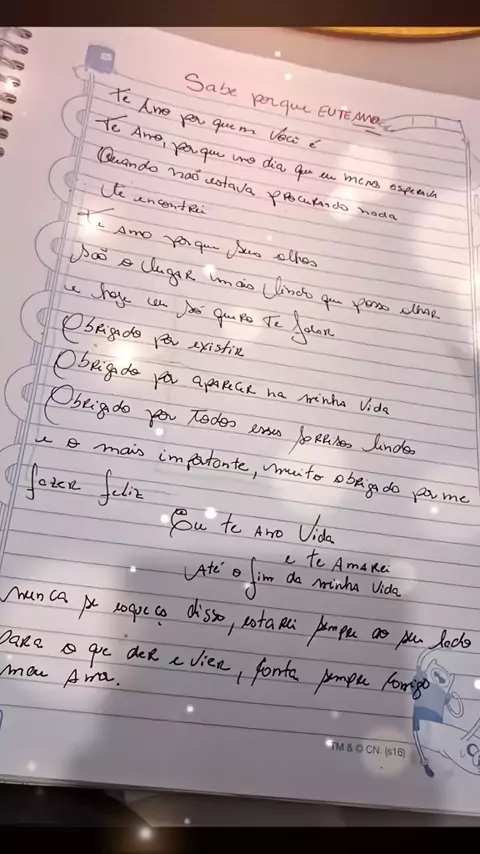 Sabe porque EU TE AMO
Te Amo por quem você é
Te Amo, porque um dia que eu menos esperava
Quando não estava procurando nada
te encontrei
Te Amo porque seus olhos
são o lugar mais lindo que posso olhar
e hoje eu só quero te falar
Obrigado por existir
Obrigado por aparecer na minha vida
Obrigado por todos esses sorrisos lindos
e o mais importante, muito obrigado por me
fazer feliz
Eu te Amo Vida
e te Amarei
Até o fim da minha vida
nunca se esqueça disso, estarei sempre ao seu lado
para o que der e vier, conta sempre comigo
meu Amor.
TM & © CN. (s16)